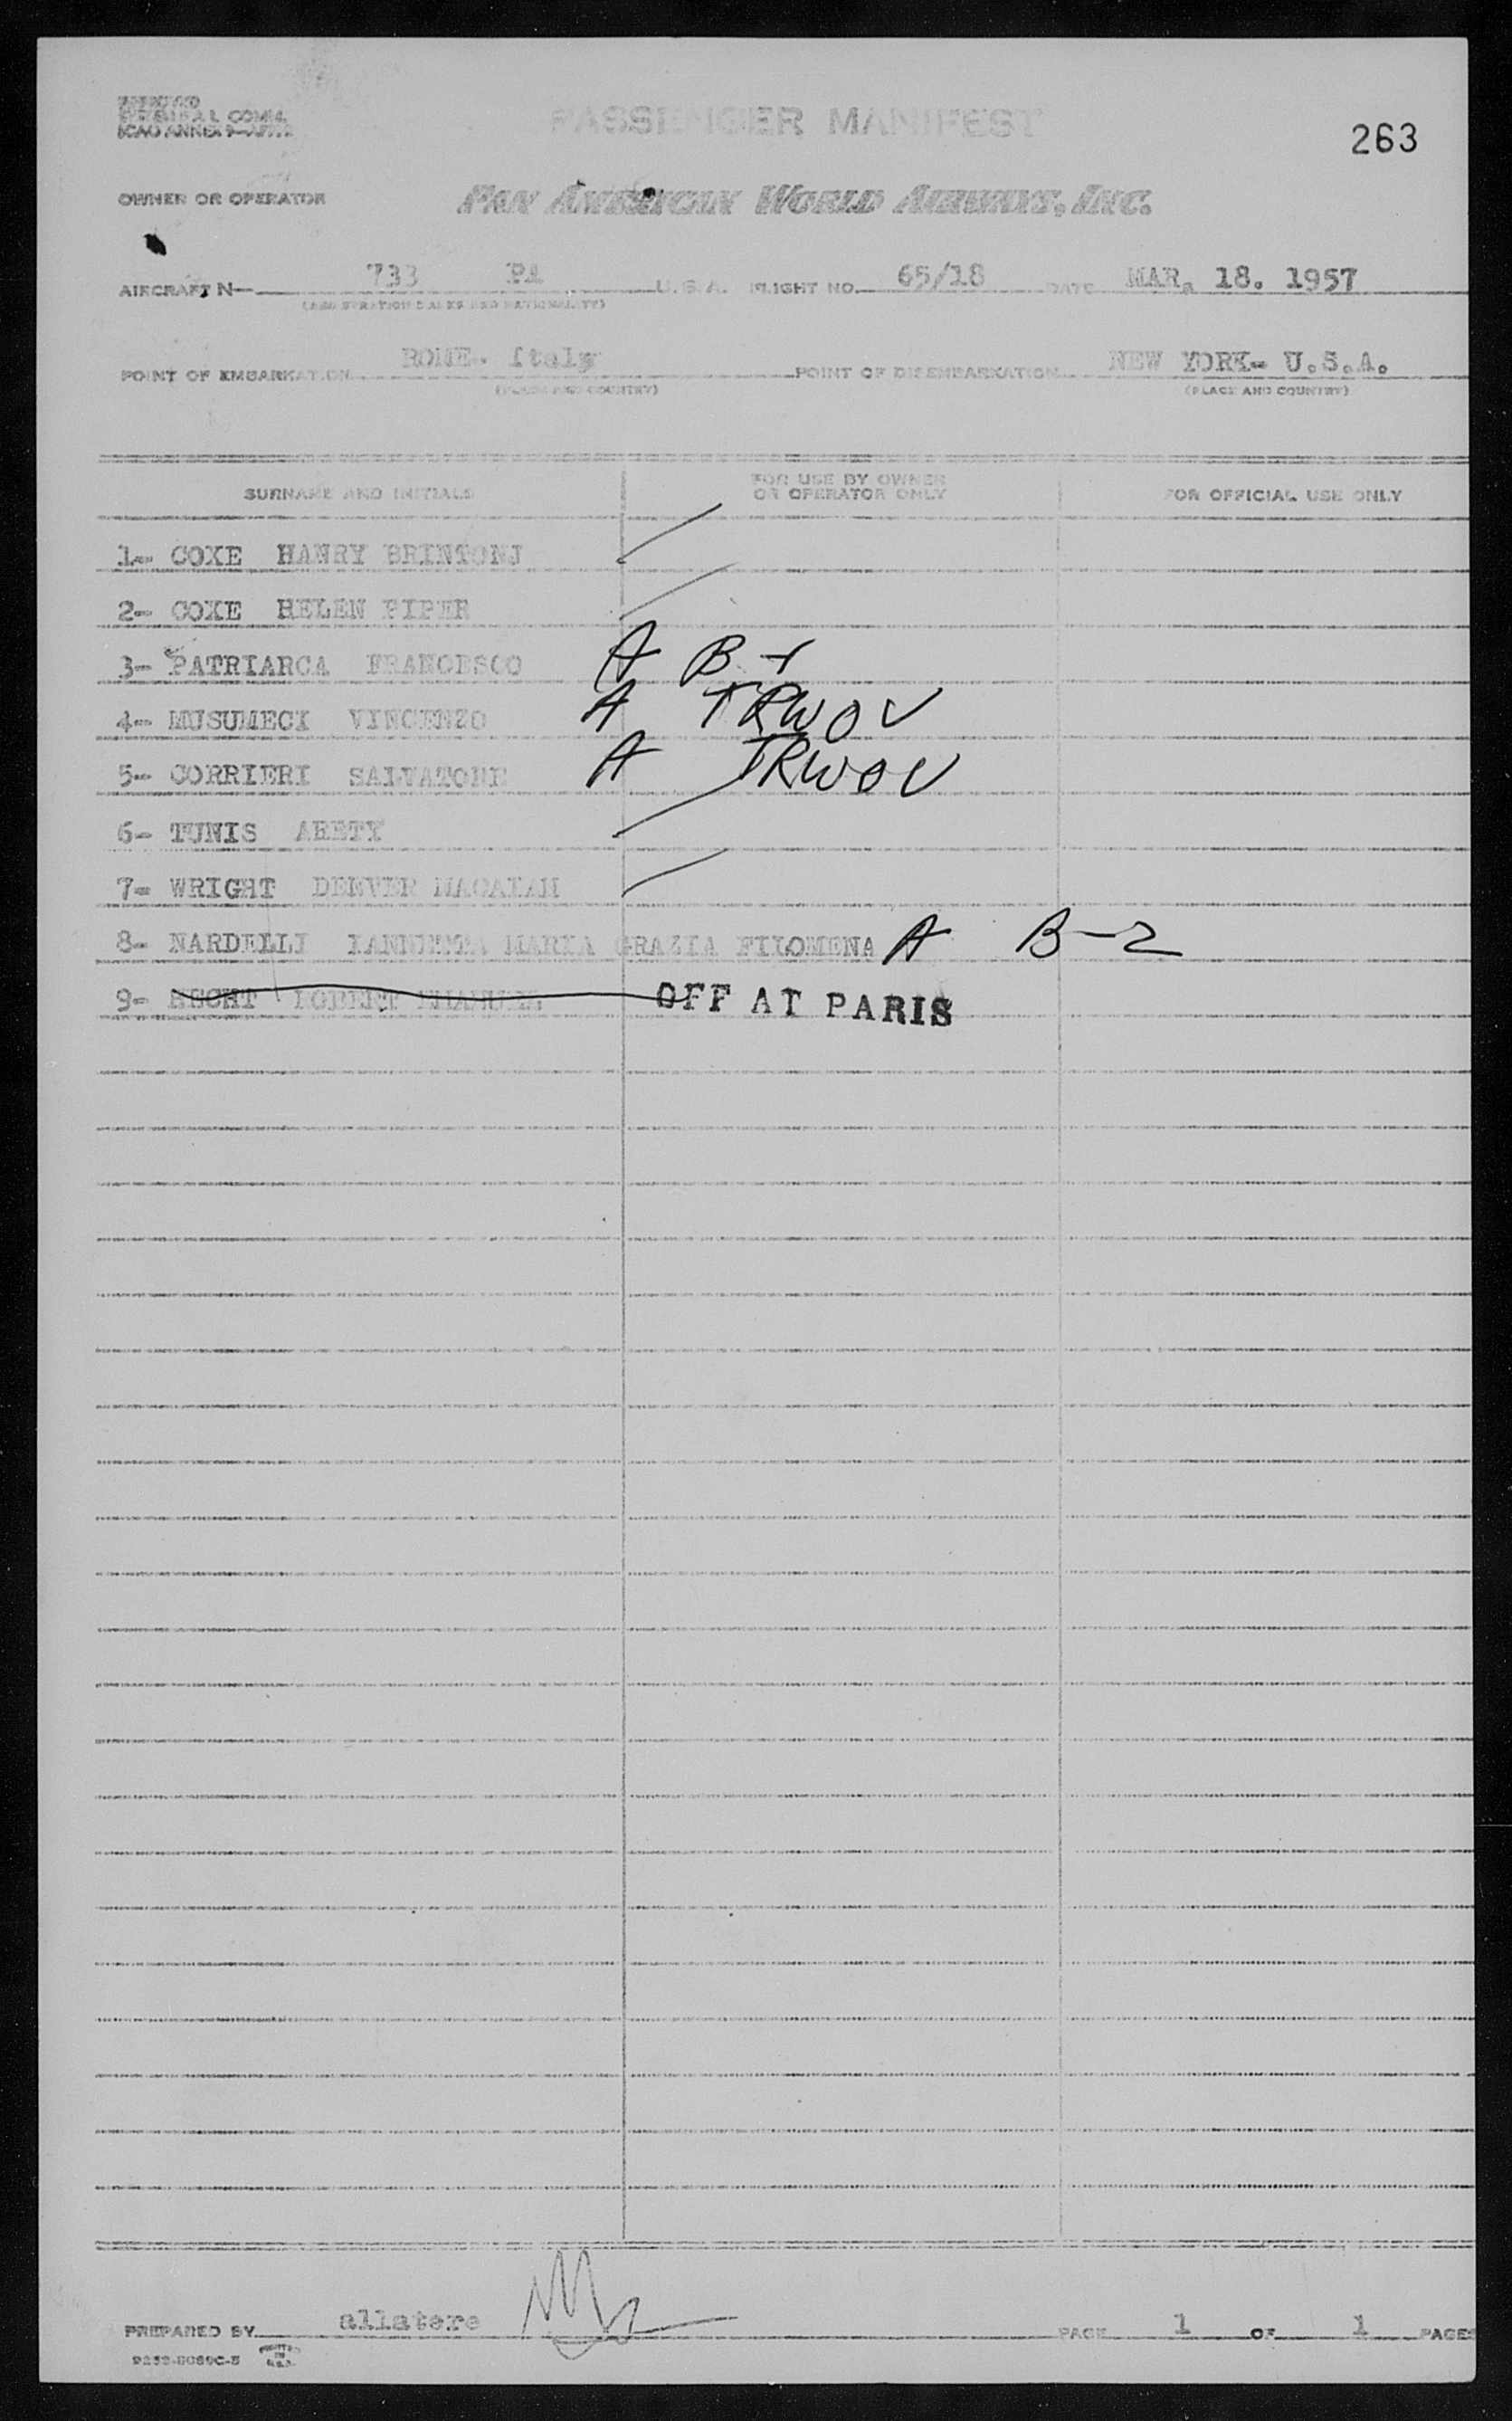 PASSENGER MANIFEST
263
OWNER OR OPERATOR PAN AMERICAN WORLD AIRWAYS, INC.
AIRCRAFT N— 733 PA U.S.A. FLIGHT NO. 65/18 DATE MAR. 18. 1957
POINT OF EMBARKATION ROME. Italy POINT OF DISEMBARKATION NEW YORK- U.S.A.
(PLACE AND COUNTRY) (PLACE AND COUNTRY)
SURNAME AND INITIALS FOR USE BY OWNER OR OPERATOR ONLY FOR OFFICIAL USE ONLY
1- COXE HANRY BRINTONJ
2- COXE HELEN PIPER
3- PATRIARCA FRANCESCO A B-1
4- MUSUMECI VINCENZO A TRWOV
5- CORRIERI SALVATORE A TRWOV
6- TUNIS ARETY
7- WRIGHT DENVER MACAIAH
8- NARDELLI IANNETTA MARIA GRAZIA FILOMENA A B-2
9- HECHT OFF AT PARIS
PREPARED BY allatere PAGE 1 OF 1 PAGES